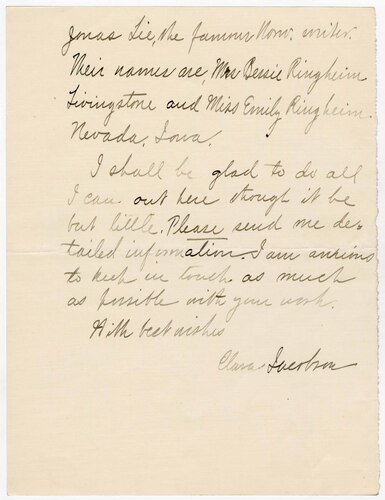 Jonas Lie, the famous Norw. writer.
Their names are, Mrs Bessie Ringheim
Livingstone and Miss Emily Ringheim
Nevada, Iowa.
I shall be glad to do all
I can out here though it be
but little. Please send me de-
tailed information. I am anxious
to keep in touch as much
as possible with your work.
With best wishes
Clara Jacobson